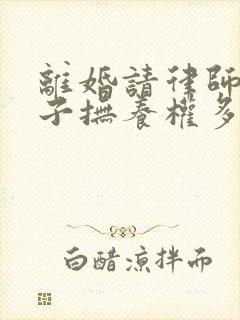 離婚請律師
子撫養權多
白醋涼拌而